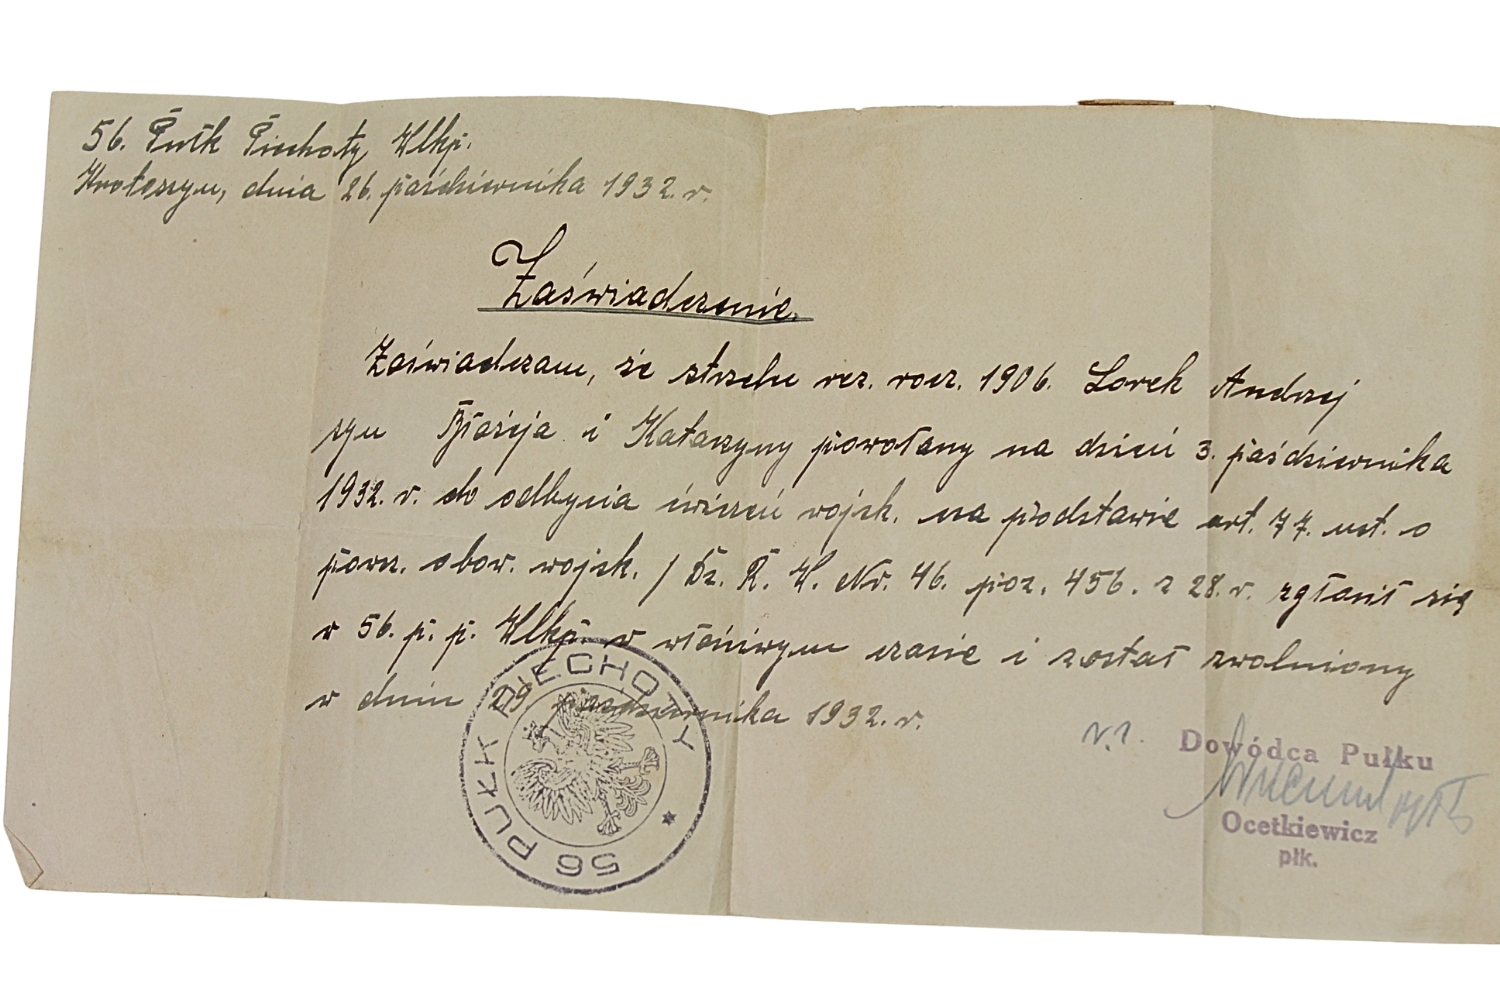 56. Pułk Piechoty Wlkp.
Krotoszyn, dnia 26. października 1932. r.
Zaświadczenie.
Zaświadczam, że strzelec rez. rocz. 1906. Lorek Andrzej
syn Błażeja i Katarzyny powołany na dzień 3. października
1932. r. do odbycia ćwiczeń wojsk. na podstawie art. 77. ust. o
powsz. obow. wojsk. / Dz. R. W. Nr. 46. poz. 456. z 28. r. zgłosił się
w 56. p. p. Wlkp. w właściwym czasie i został zwolniony
w dniu 29 października 1932. r.
56 PUŁK PIECHOTY
Dowódca Pułku
Ocetkiewicz
płk.